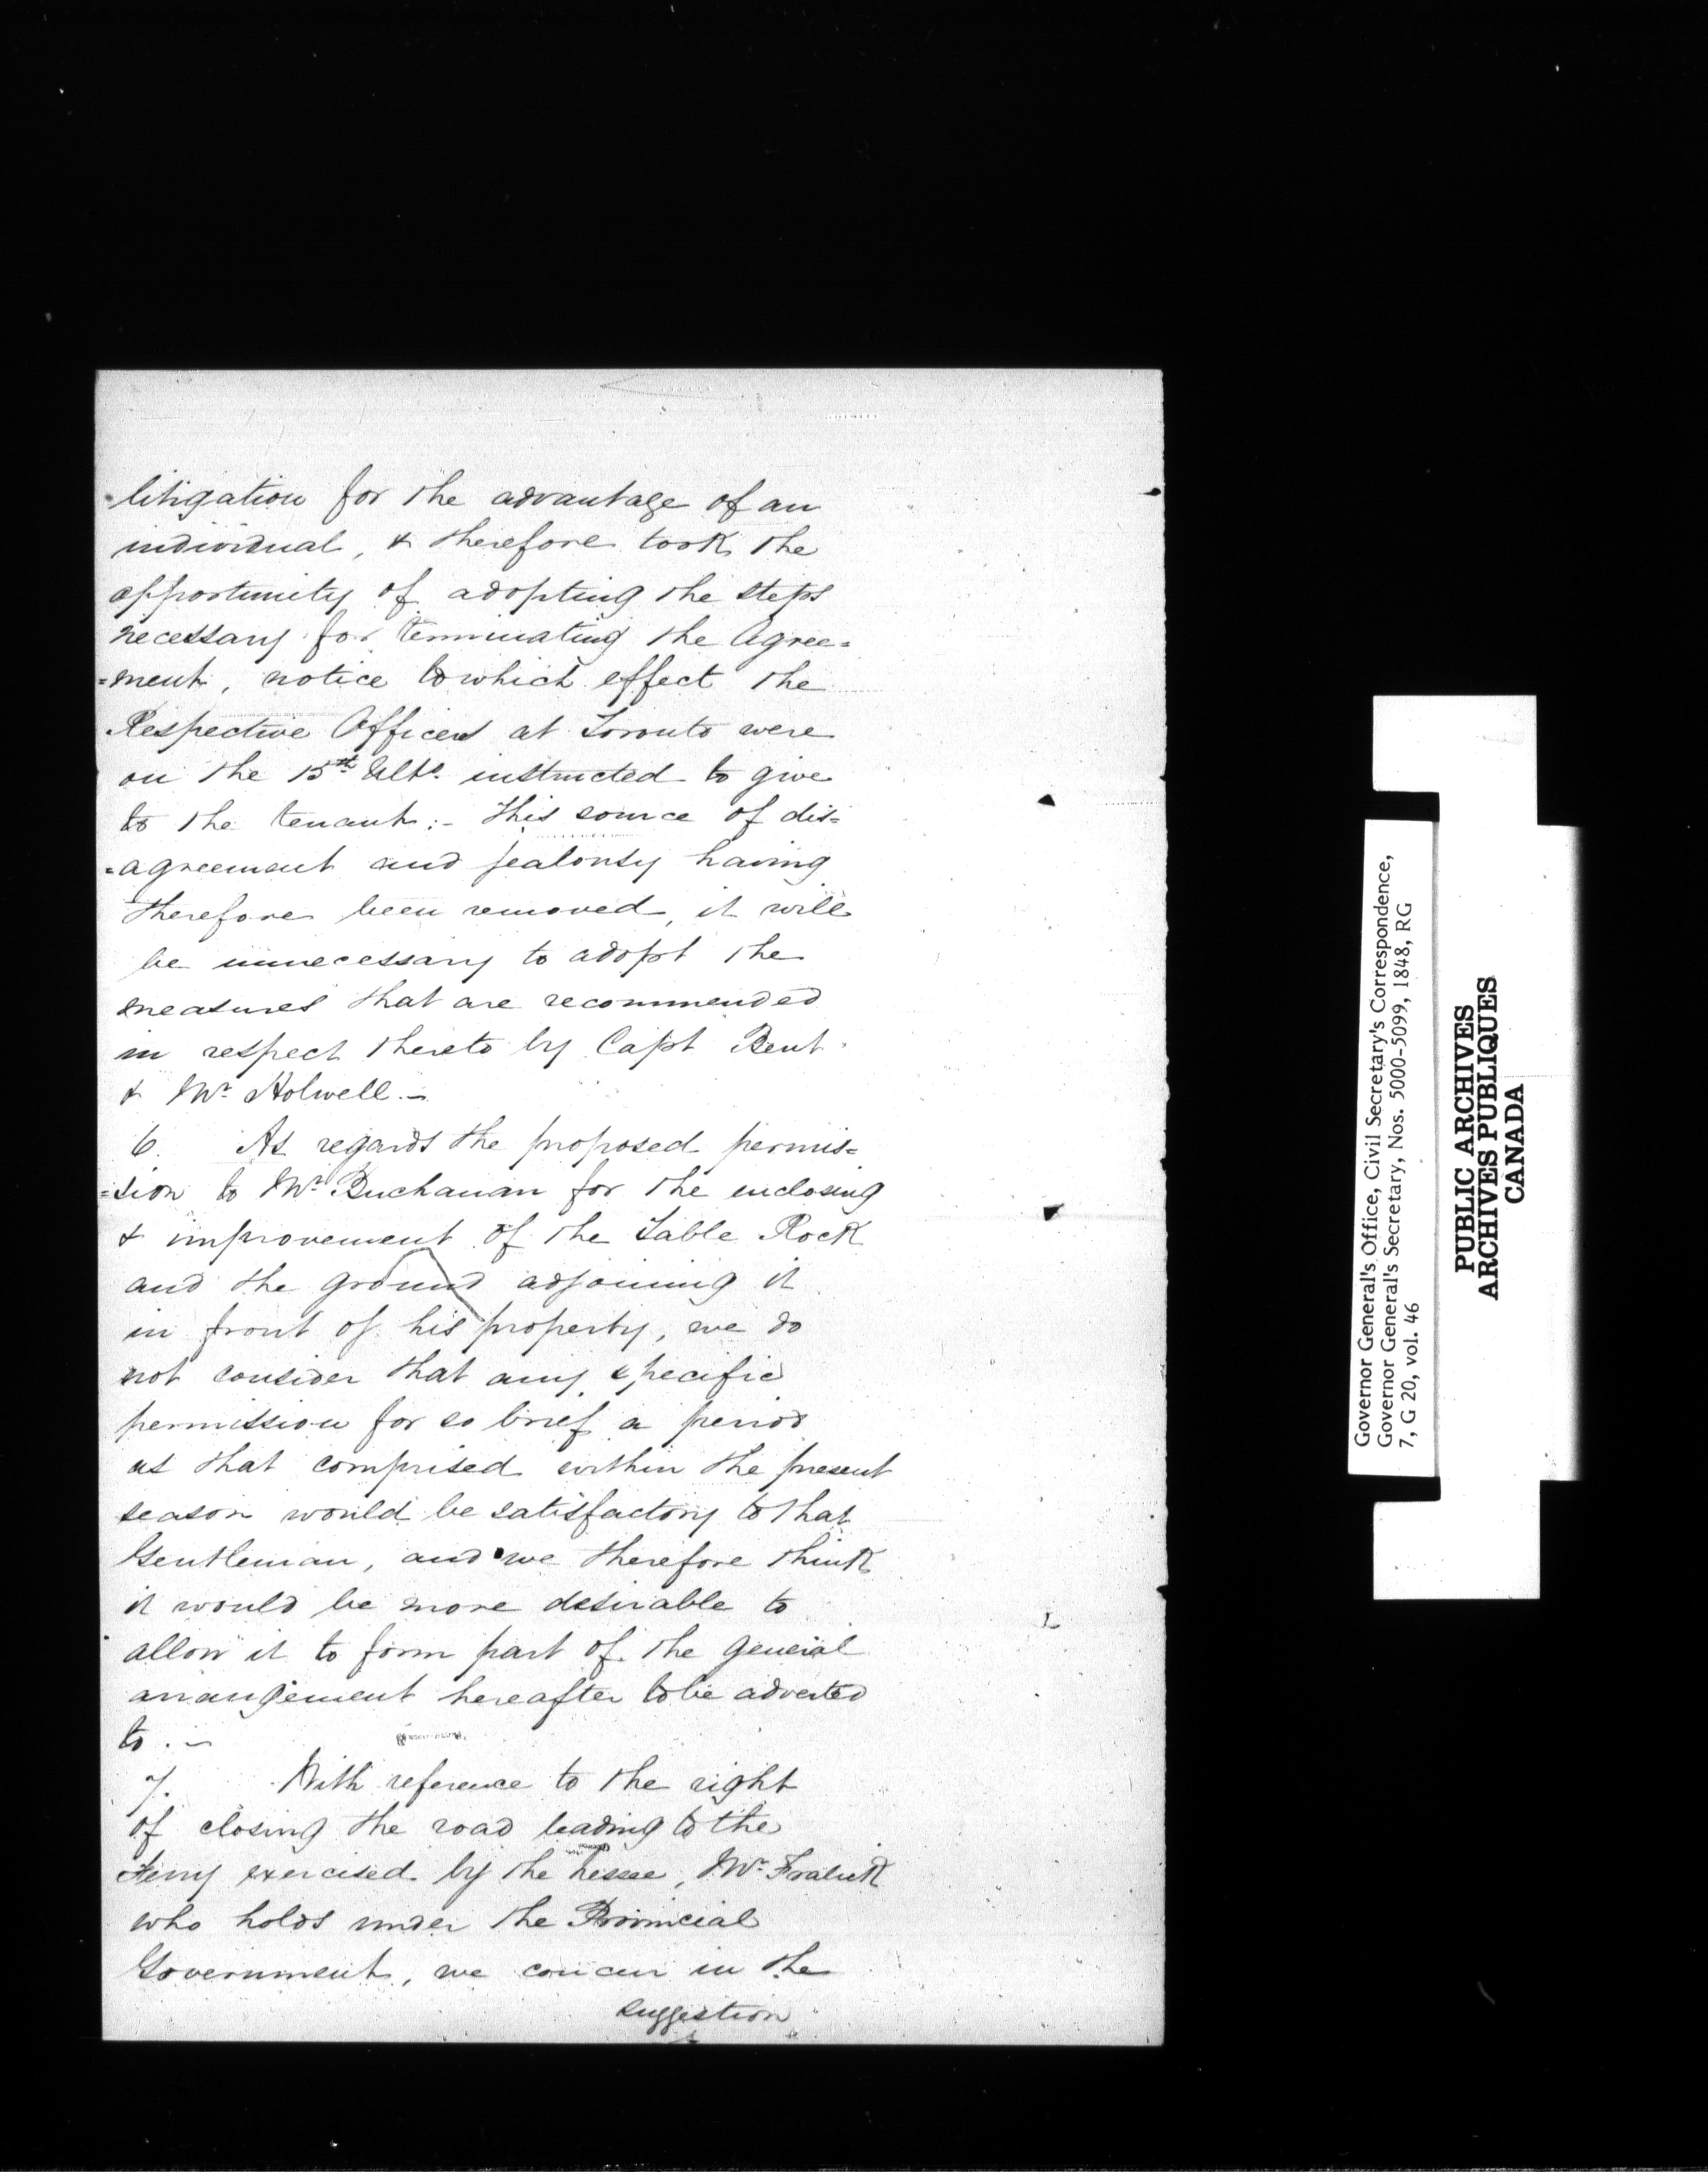 litigation for the advantage of an
individual, & therefore took the
opportunity of adopting the steps
necessary for terminating the Agree=
=ment, notice to which effect the
Respective Officers at Toronto were
on the 15th Ulto. instructed to give
to the tenant:- This source of dis=
=agreement and jealousy having
therefore been removed, it will
be unnecessary to adopt the
measures that are recommended
in respect thereto by Capt Bent
& Mr Holwell.-
6. As regards the proposed permis=
=sion to Mr Buchanan for the enclosing
& improvement of the Table Rock
and the ground adjoining it
in front of his property, we do
not consider that any specific
permission for so brief a period
as that comprised within the present
season would be satisfactory to that
Gentleman, and we therefore think
it would be more desirable to
allow it to form part of the general
arrangement hereafter to be adverted
to.-
7. With reference to the right
of closing the road leading to the
Ferry exercised by the lessee, Mr Fralick
who holds under the Provincial
Government, we concur in the
suggestion
Governor General's Office, Civil Secretary's Correspondence,
Governor General's Secretary, Nos. 5000-5099, 1848, RG
7, G 20, vol. 46
PUBLIC ARCHIVES
ARCHIVES PUBLIQUES
CANADA